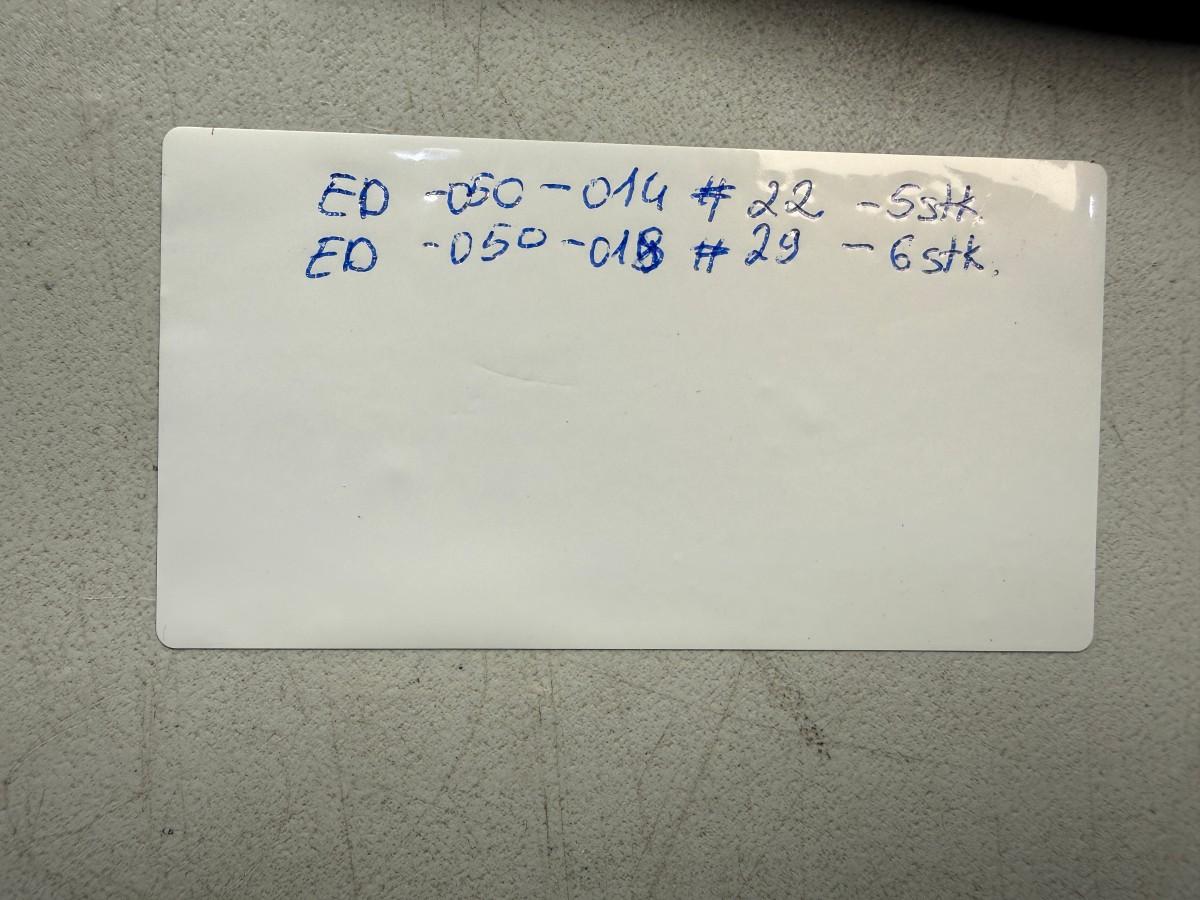 ED -050-014 # 22 -5stk.
ED -050-018 # 29 - 6stk.